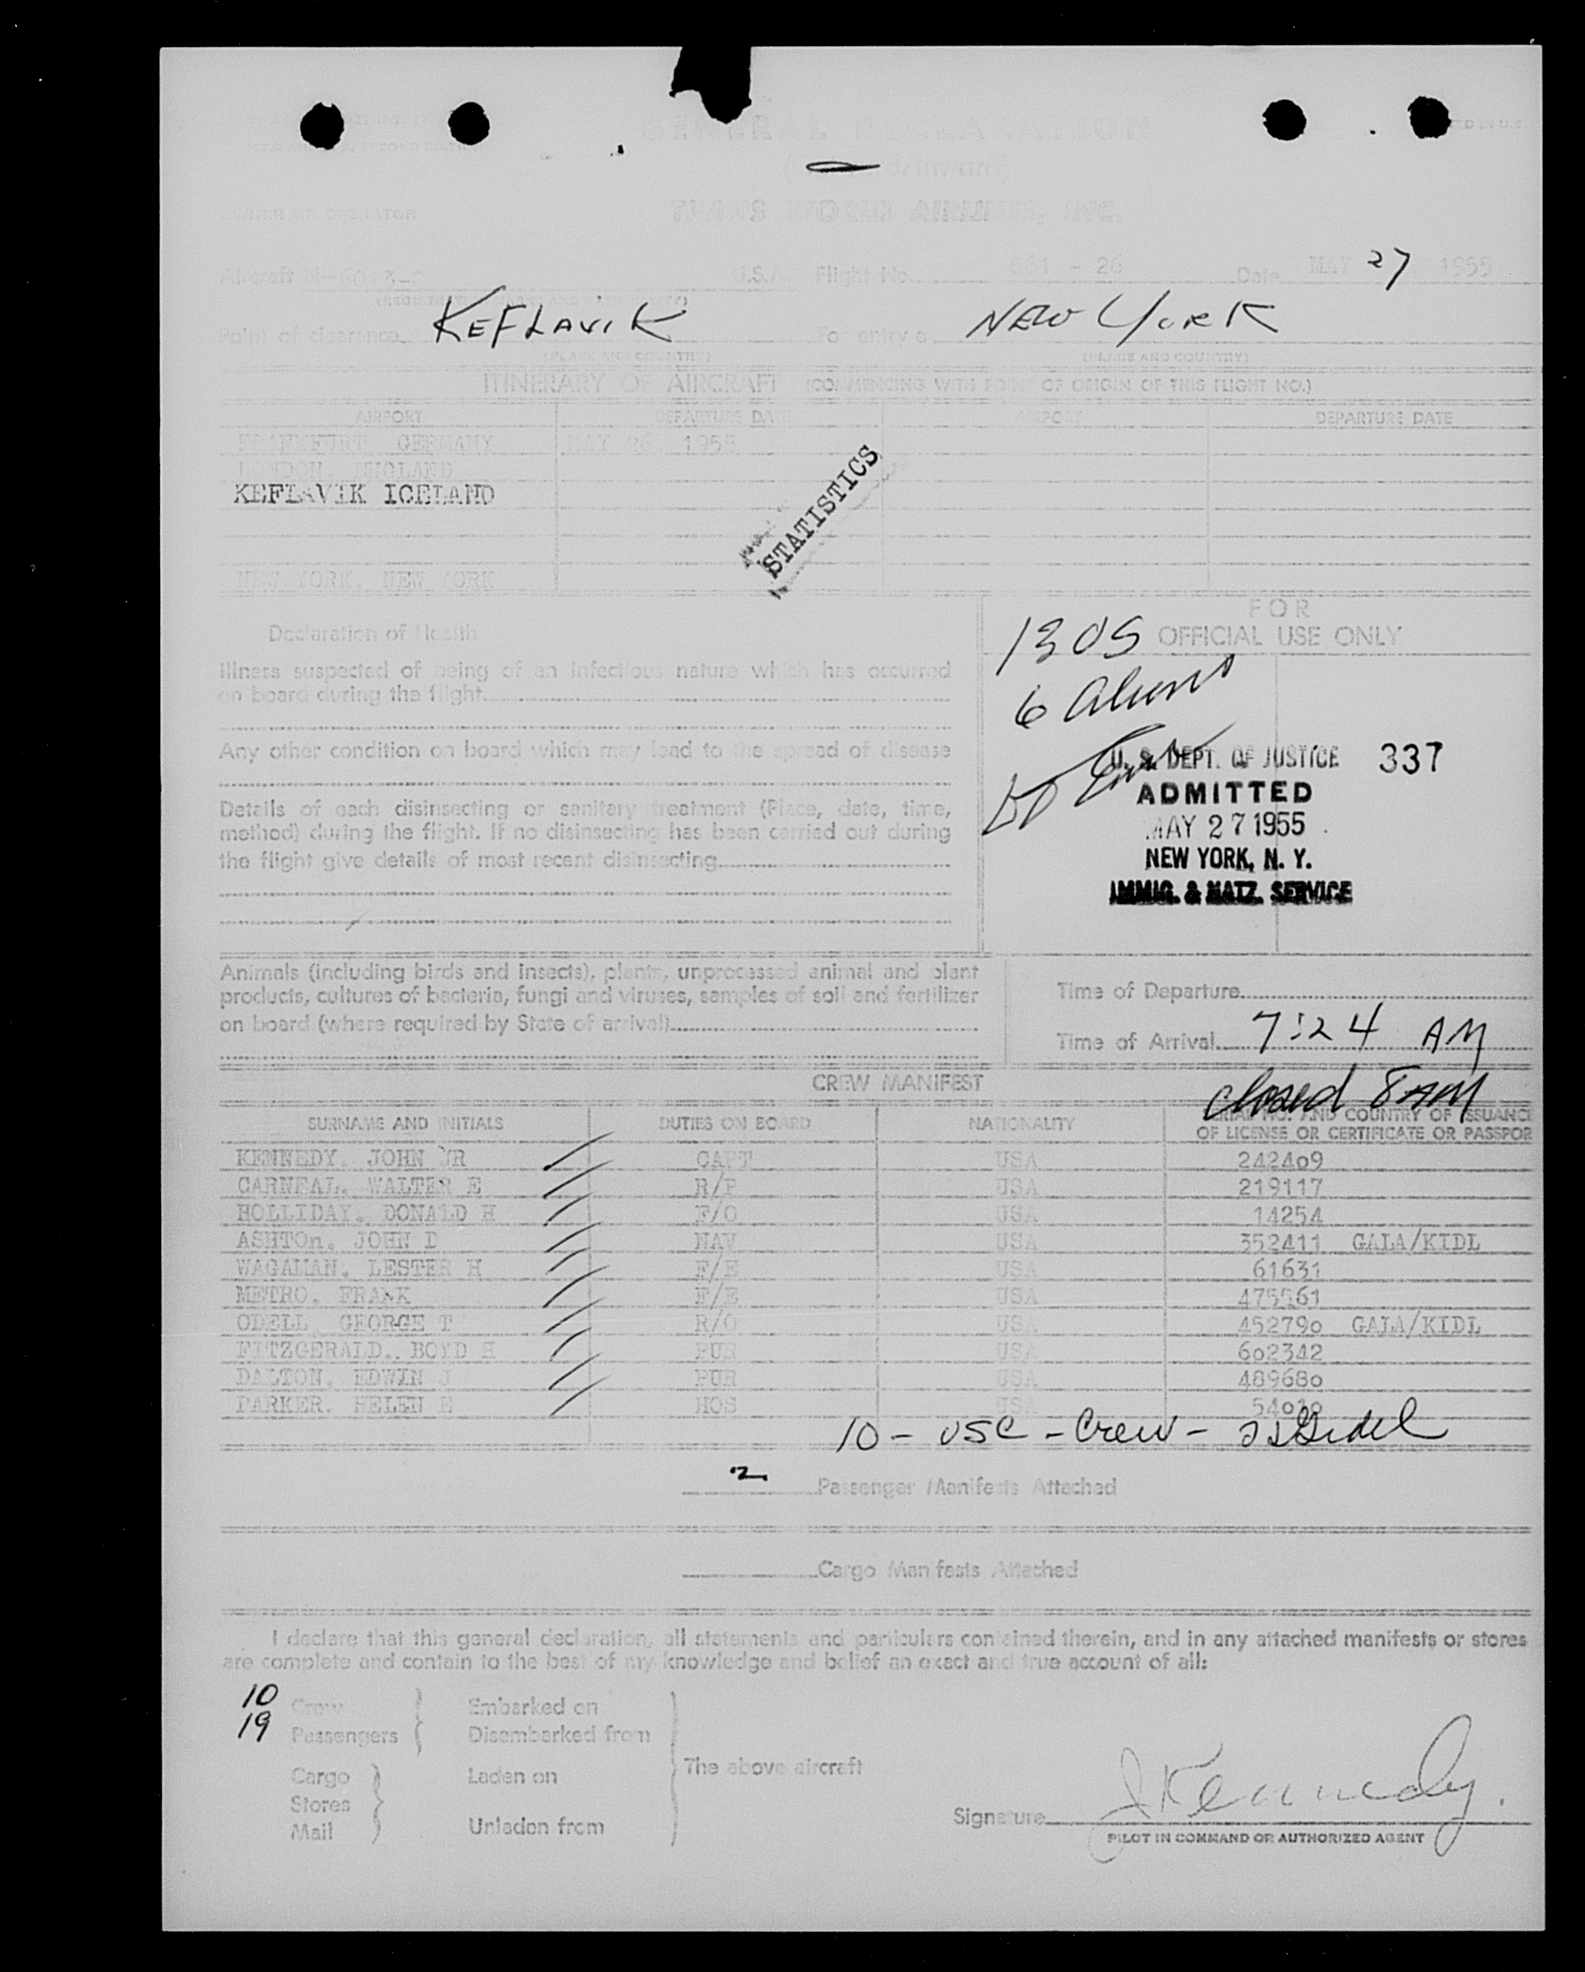 GENERAL DECLARATION
OWNER OR OPERATOR TRANS WORLD AIRLINES, INC.
Aircraft U.S.A. Flight No. 881 - 26 Date MAY 27 1955
Point of clearance KEFLAVIK For entry a NEW YORK
(PLACE AND COUNTRY) (PLACE AND COUNTRY)
ITINERARY OF AIRCRAFT (COMMENCING WITH POINT OF ORIGIN OF THIS FLIGHT NO.)
AIRPORT DEPARTURE DATE AIRPORT DEPARTURE DATE
FRANKFURT GERMANY MAY 26 1955
LONDON, ENGLAND
KEFLAVIK ICELAND
STATISTICS
NEW YORK, NEW YORK
FOR
OFFICIAL USE ONLY
Declaration of Health
Illness suspected of being of an infectious nature which has occurred
on board during the flight
Any other condition on board which may lead to the spread of disease
Details of each disinsecting or sanitary treatment (Place, date, time,
method) during the flight. If no disinsecting has been carried out during
the flight give details of most recent disinsecting
6 Aliens
U. S. DEPT. OF JUSTICE 337
ADMITTED
MAY 27 1955
NEW YORK, N. Y.
IMMIG. & NATZ. SERVICE
Animals (including birds and insects), plants, unprocessed animal and plant
products, cultures of bacteria, fungi and viruses, samples of soil and fertilizer
on board (where required by State of arrival)
Time of Departure
Time of Arrival 7:24 AM
closed 8 AM
CREW MANIFEST
SURNAME AND INITIALS DUTIES ON BOARD NATIONALITY SERIAL NO. AND COUNTRY OF ISSUANCE
OF LICENSE OR CERTIFICATE OR PASSPOR
KENNEDY, JOHN JR CAPT USA 242409
CARNEAL, WALTER E R/P USA 219117
HOLLIDAY, DONALD H F/O USA 14254
ASHTOn, JOHN D NAV USA 352411 GALA/KIDL
WAGAMAN, LESTER H F/E USA 61631
METRO, FRANK F/E USA 475561
ODELL GEORGE T R/O USA 452790 GALA/KIDL
FITZGERALD, BOYD H PUR USA 602342
DALTON, EDWIN J PUR USA 489680
PARKER, HELEN E HOS USA 54010
10 - USC - Crew -
2 Passenger Manifests Attached
Cargo Manifests Attached
I declare that this general declaration, all statements and particulars contained therein, and in any attached manifests or stores
are complete and contain to the best of my knowledge and belief an exact and true account of all:
10 Crew Embarked on
19 Passengers Disembarked from
The above aircraft
Cargo Laden on
Stores
Mail Unladen from
Signature J Kennedy.
PILOT IN COMMAND OR AUTHORIZED AGENT